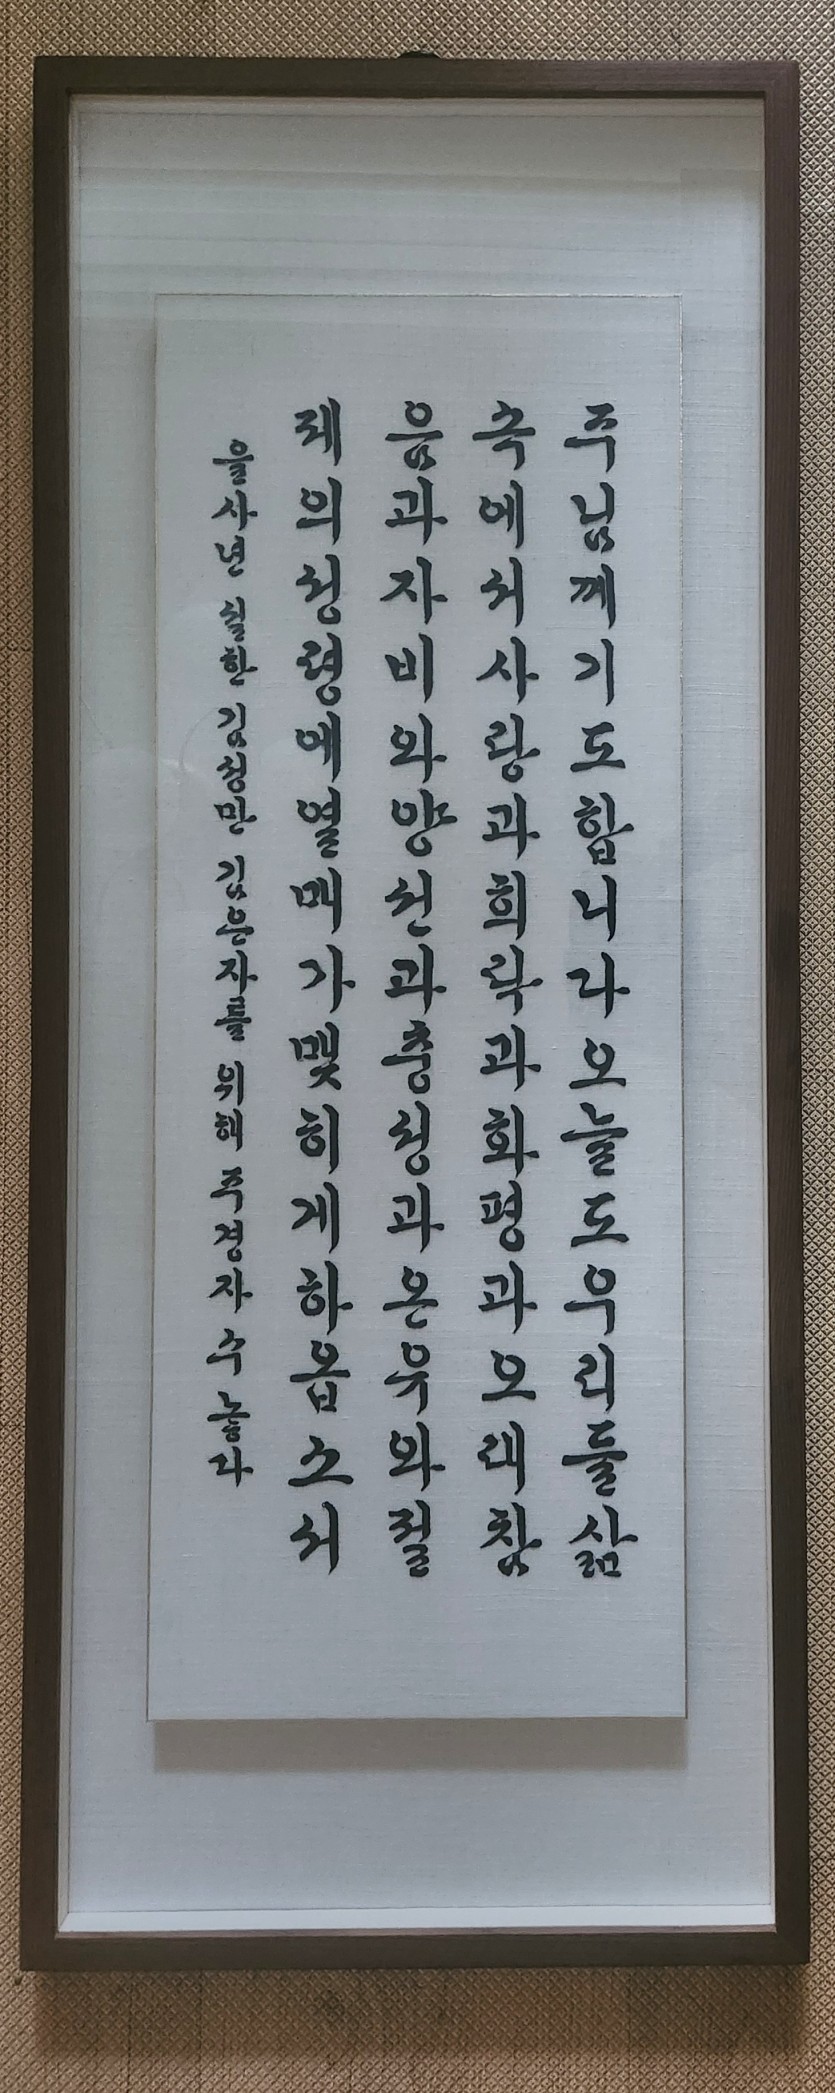 주님께기도합니다오늘도우리들삶
속에서사랑과희락과화평과오래참
음과자비와양선과충성과온유와절
제의성령에열매가맺히게하옵소서
을사년 칠한 김성만 김응자를 위해 주경자 수놓다